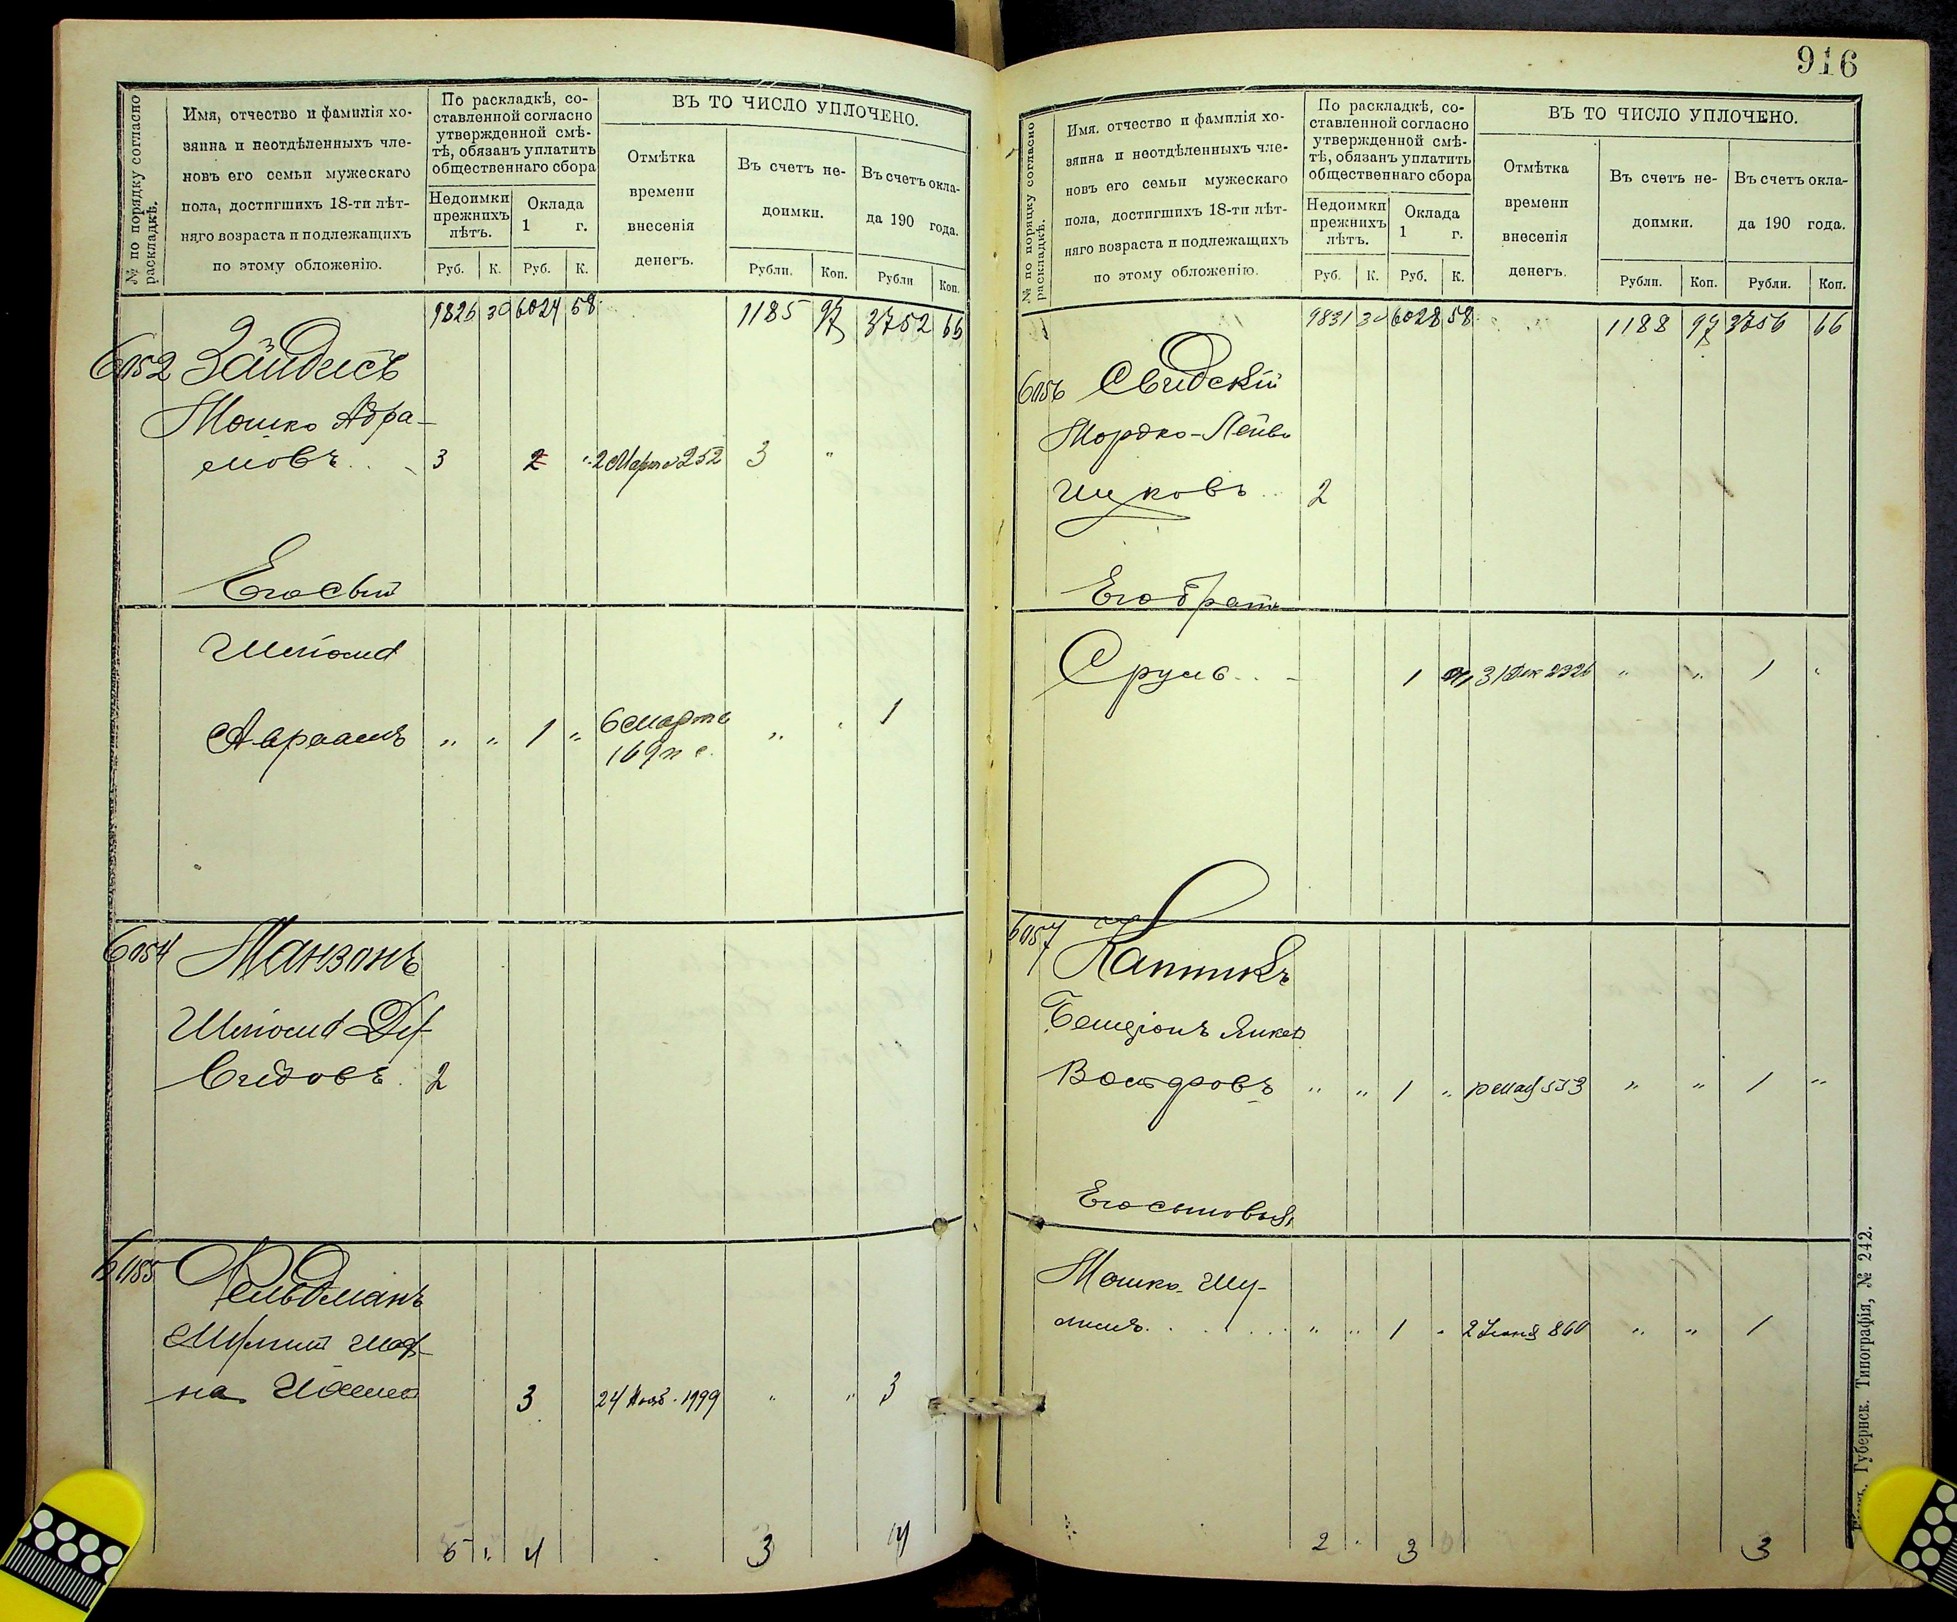 № по порядку согласно раскладкѣ.
Имя, отчество и фамилія хо-
зяина и неотдѣленныхъ чле-
новъ его семьи мужескаго
пола, достигшихъ 18-ти лѣт-
няго возраста и подлежащихъ
по этому обложенію.
По раскладкѣ, со-
ставленной согласно
утвержденной смѣ-
тѣ, обязанъ уплатить
общественнаго сбора
Недоимки
прежнихъ
лѣтъ.
Оклада
1 г.
Руб. К. Руб. К.
ВЪ ТО ЧИСЛО УПЛОЧЕНО.
Отмѣтка
времени
внесенія
денегъ.
Въ счетъ не-
доимки.
Въ счетъ окла-
да 190 года.
Рубли. Коп. Рубли Коп.
9826 30 6024 58 1185 97 3752 66
6052 Зайдесъ
Мошко Абра-
мовъ 3 2 " 2 Марта 252 3 "
Его сын
Шлиома
Авраамъ " " 1 " 6 марта " " 1
169
6054 Манзонъ
Шлиома
видовъ 2
6055 Фельдманъ
на
3 24 Нояб. 1999 " " 3
5 " 4 3 4
916
№ по порядку согласно раскладкѣ.
Имя, отчество и фамилія хо-
зяина и неотдѣленныхъ чле-
новъ его семьи мужескаго
пола, достигшихъ 18-ти лѣт-
няго возраста и подлежащихъ
по этому обложенію.
По раскладкѣ, со-
ставленной согласно
утвержденной смѣ-
тѣ, обязанъ уплатить
общественнаго сбора
Недоимки
прежнихъ
лѣтъ.
Оклада
1 г.
Руб. К. Руб. К.
ВЪ ТО ЧИСЛО УПЛОЧЕНО.
Отмѣтка
времени
внесенія
денегъ.
Въ счетъ не-
доимки.
Въ счетъ окла-
да 190 года.
Рубли. Коп. Рубли. Коп.
9831 30 6028 58 1188 97 3756 66
6056 Свидскій
Мордко-Лейба
Ицковъ 2
Его братъ
Сруль 1 31 Дек 2326 " " 1 "
6057 Каптикъ
Бенціонъ Янкел
" " 1 " 553 " " 1 "
Его сыновья
Мошко-Шу-
лимъ " " 1 " 2 Іюня 860 " " 1
2 3 3
Губернск. Типографія, № 242.